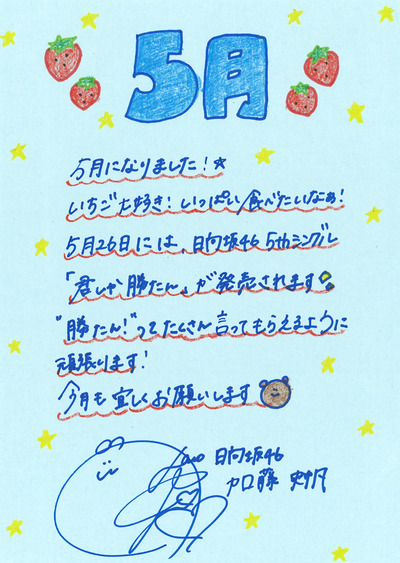 5月
5月になりました！☆
いちご大好き！いっぱい食べたいなぁ！
5月26日には、日向坂46 5thシングル
「君しか勝たん」が発売されます
"勝たん！"ってたくさん言ってもらえるように
頑張ります！
今月も宜しくお願いします
日向坂46
加藤 史帆